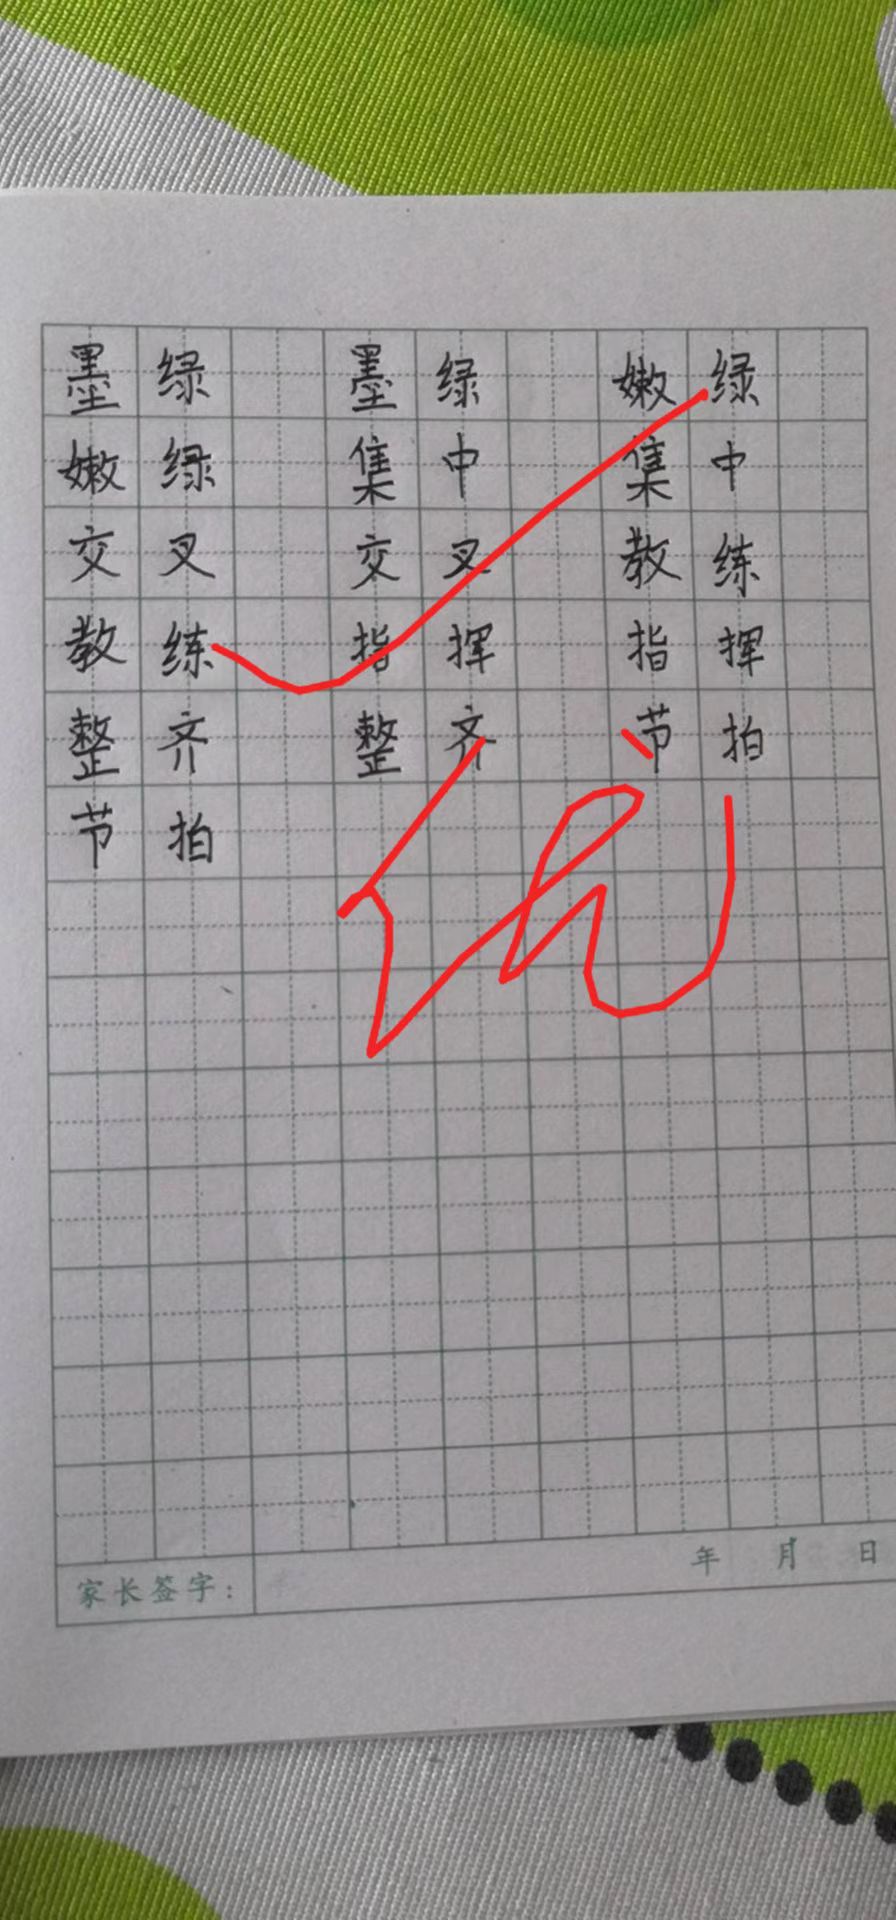 墨绿 墨绿 嫩绿
嫩绿 集中 集中
交叉 交叉 教练
教练 指挥 指挥
整齐 整齐 节拍
节拍
家长签字： 年 月 日